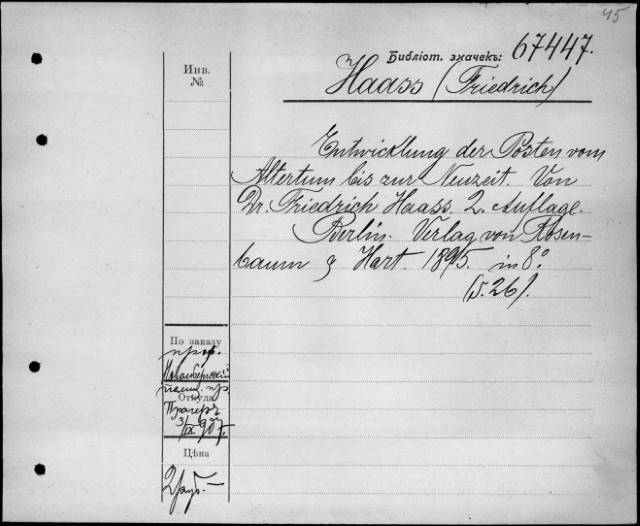 45
Библіот. значекъ: 67447.
Инв.
№
Haass (Friedrich)
Entwicklung der Posten vom
Altertum bis zur Neuzeit. Von
Dr. Friedrich Haass. 2. Auflage.
Berlin. Verlag von Rosen-
baum & Hart. 1895. in 8°.
(S. 26).
По заказу
проф.
Откуда
Прагеръ
3/IX 907.
Цѣна
2 руб. —